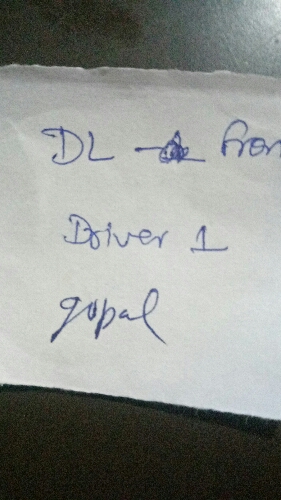 DL - Fron
Driver 1
gopal